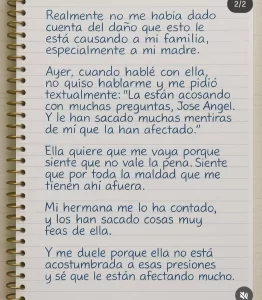 2/2
Realmente no me había dado
cuenta del daño que esto le
está causando a mi familia,
especialmente a mi madre.
Ayer, cuando hablé con ella,
no quiso hablarme y me pidió
textualmente: "La están acosando
con muchas preguntas, Jose Angel.
Y le han sacado muchas mentiras
de mí que la han afectado."
Ella quiere que me vaya porque
siente que no vale la pena. Siente
que por toda la maldad que me
tienen ahí afuera.
Mi hermana me lo ha contado,
y los han sacado cosas muy
feas de ella.
Y me duele porque ella no está
acostumbrada a esas presiones
y sé que le están afectando mucho.